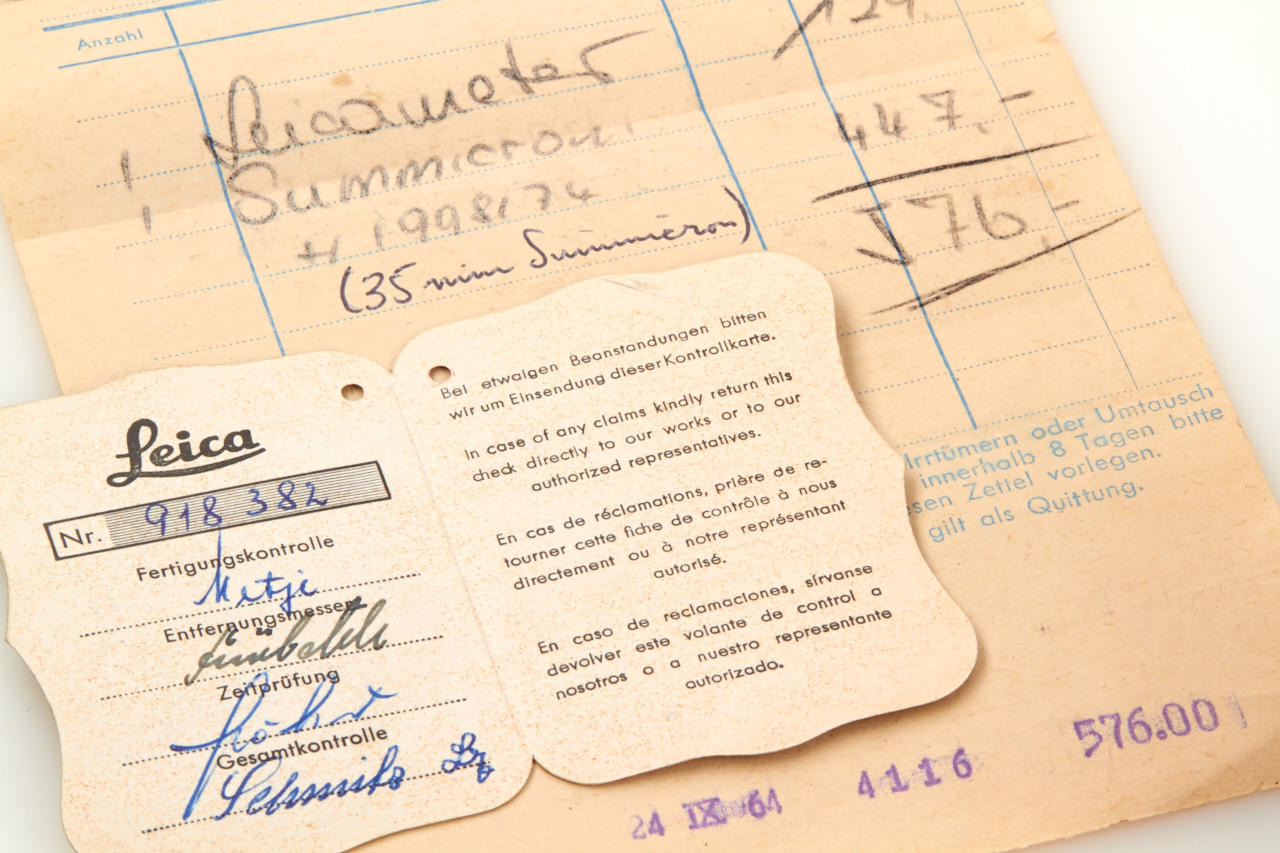 Anzahl
129.
1 Leicameter
447.-
1 Summicron
576.-
# 1998174
(35 mm Summicron)
Irrtümern oder Umtausch
innerhalb 8 Tagen bitte
sen Zettel vorlegen.
gilt als Quittung.
Leica
Nr. 918 382
Fertigungskontrolle
Metje
Entfernungsmesser
Zeitprüfung
Gesamtkontrolle
Bei etwaigen Beanstandungen bitten
wir um Einsendung dieser Kontrollkarte.
In case of any claims kindly return this
check directly to our works or to our
authorized representatives.
En cas de réclamations, prière de re-
tourner cette fiche de contrôle à nous
directement ou à notre représentant
autorisé.
En caso de reclamaciones, sírvanse
devolver este volante de control a
nosotros o a nuestro representante
autorizado.
24 IX 64 4116 576.00